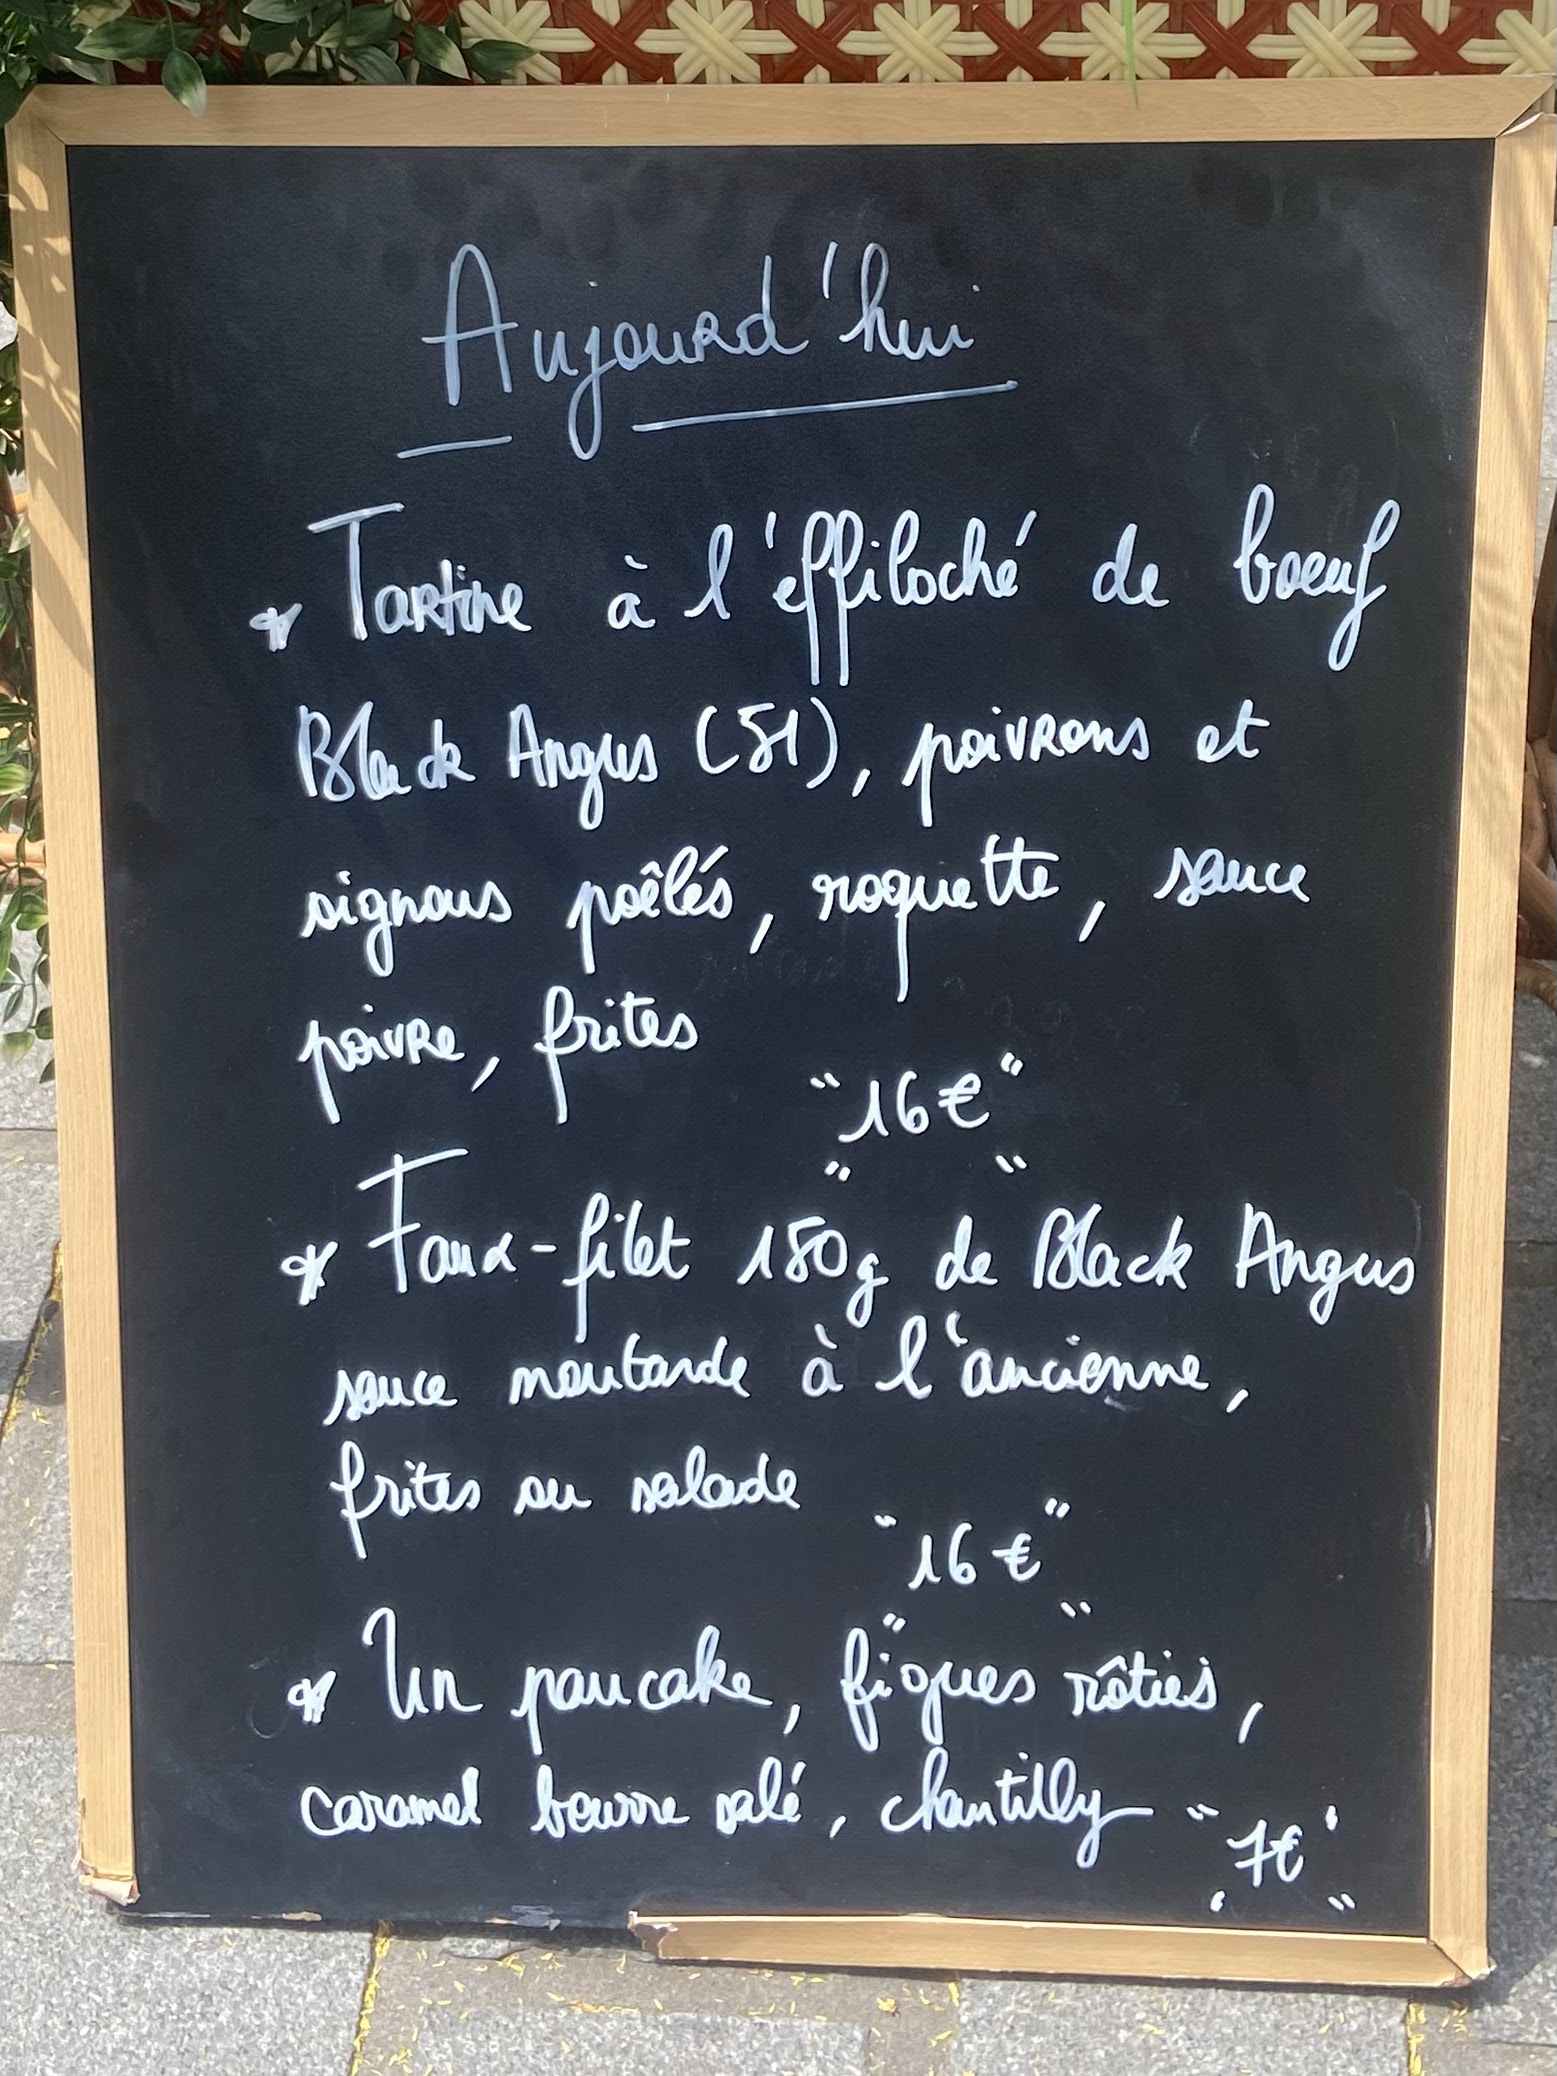 Aujourd'hui
* Tartine à l'éffiloché de boeuf
Black Angus (51), poivrons et
oignons poêlés, roquette, sauce
poivre, frites
"16€"
* Faux-filet 180g de Black Angus
sauce moutarde à l'ancienne,
frites ou salade
"16€"
* Un pancake, figues rôties,
caramel beurre salé, chantilly
"7€"